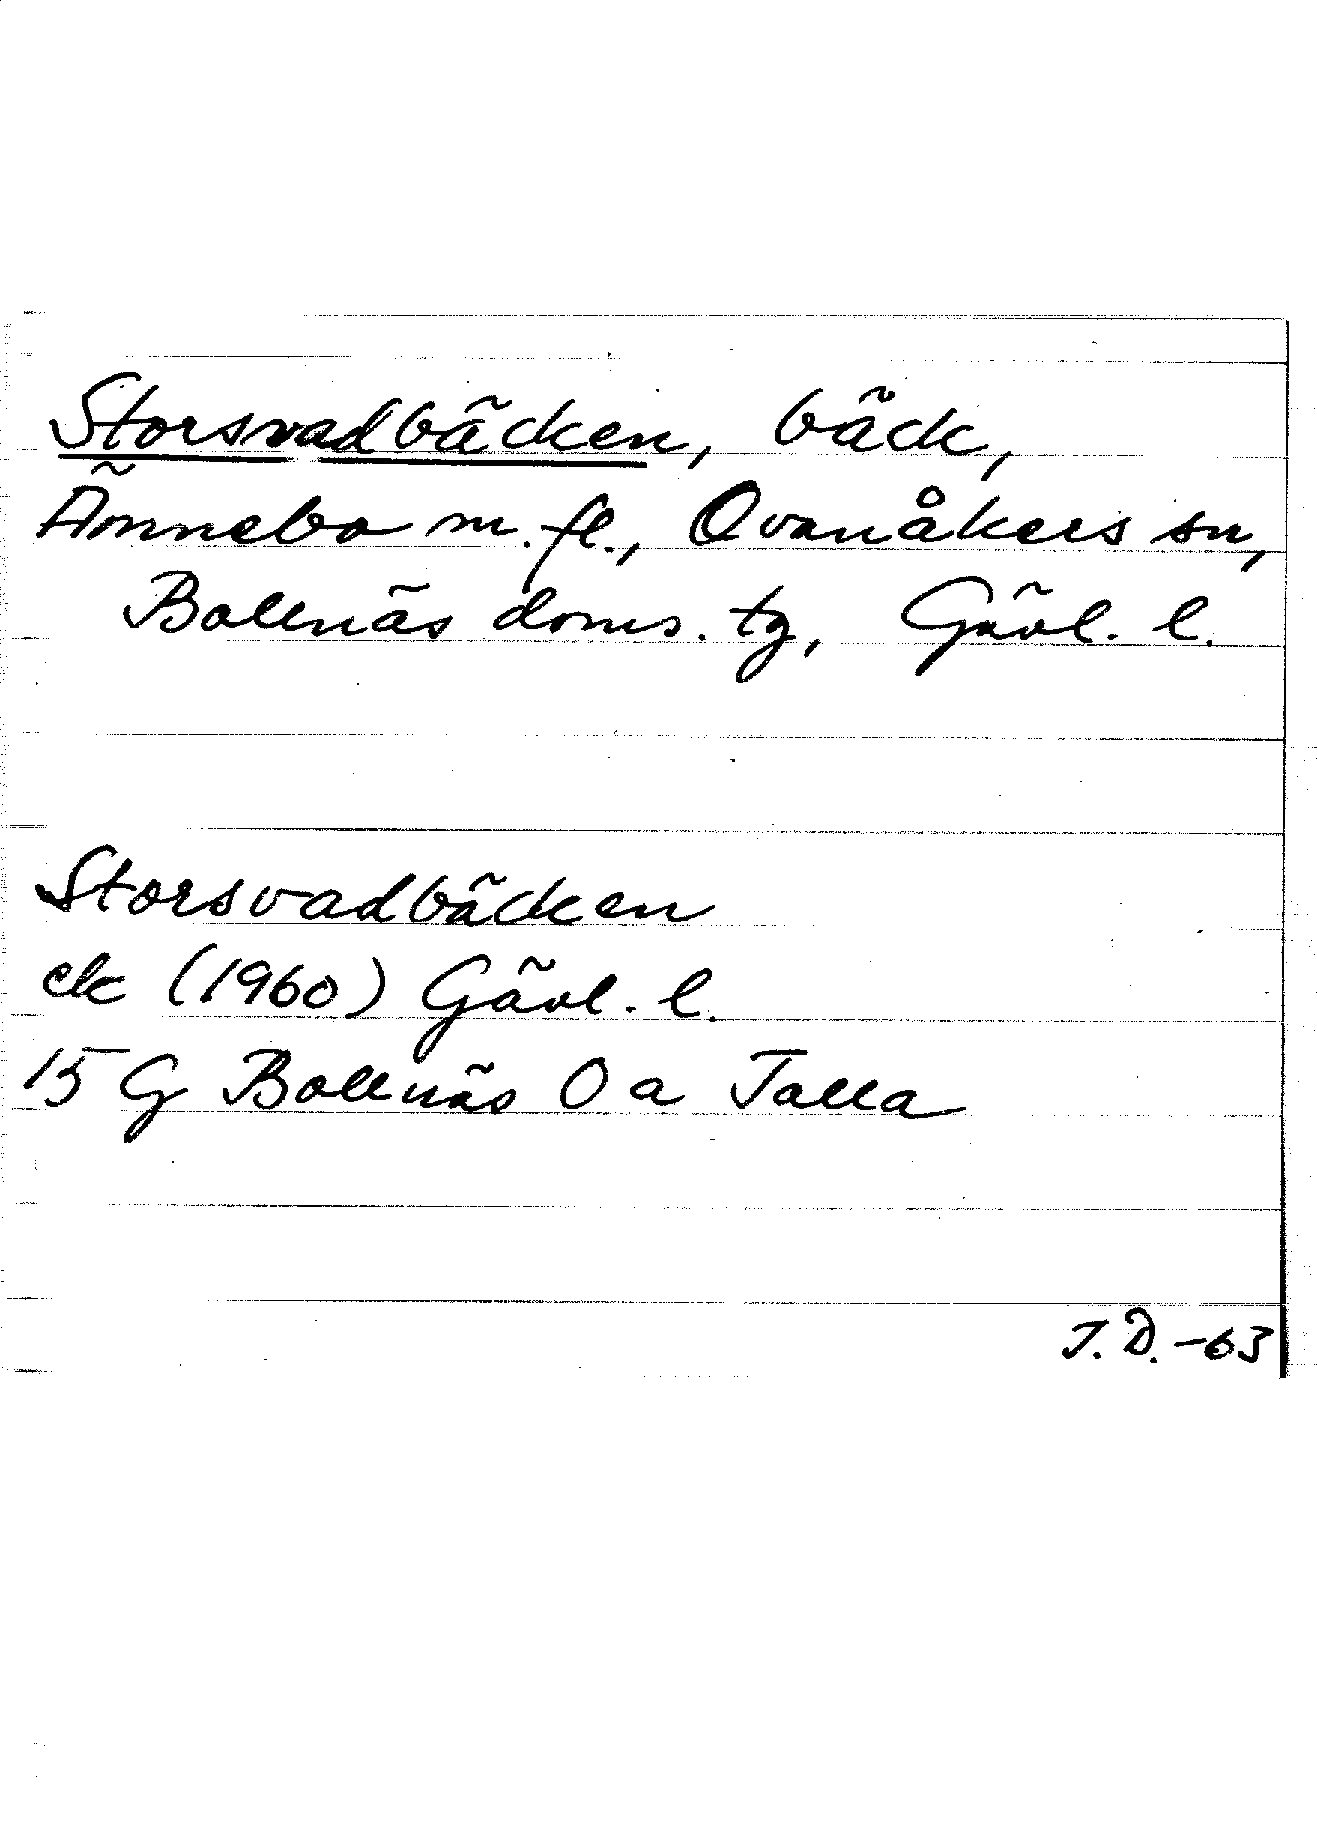 Storsvadbäcken, bäck,
Ännebo m. fl., Ovanåkers sn,
Bollnäs doms. tg, Gävl. l.
Storsvadbäcken
ek (1960) Gävl. l.
15 G Bollnäs 0 a Talla
J. D. -63